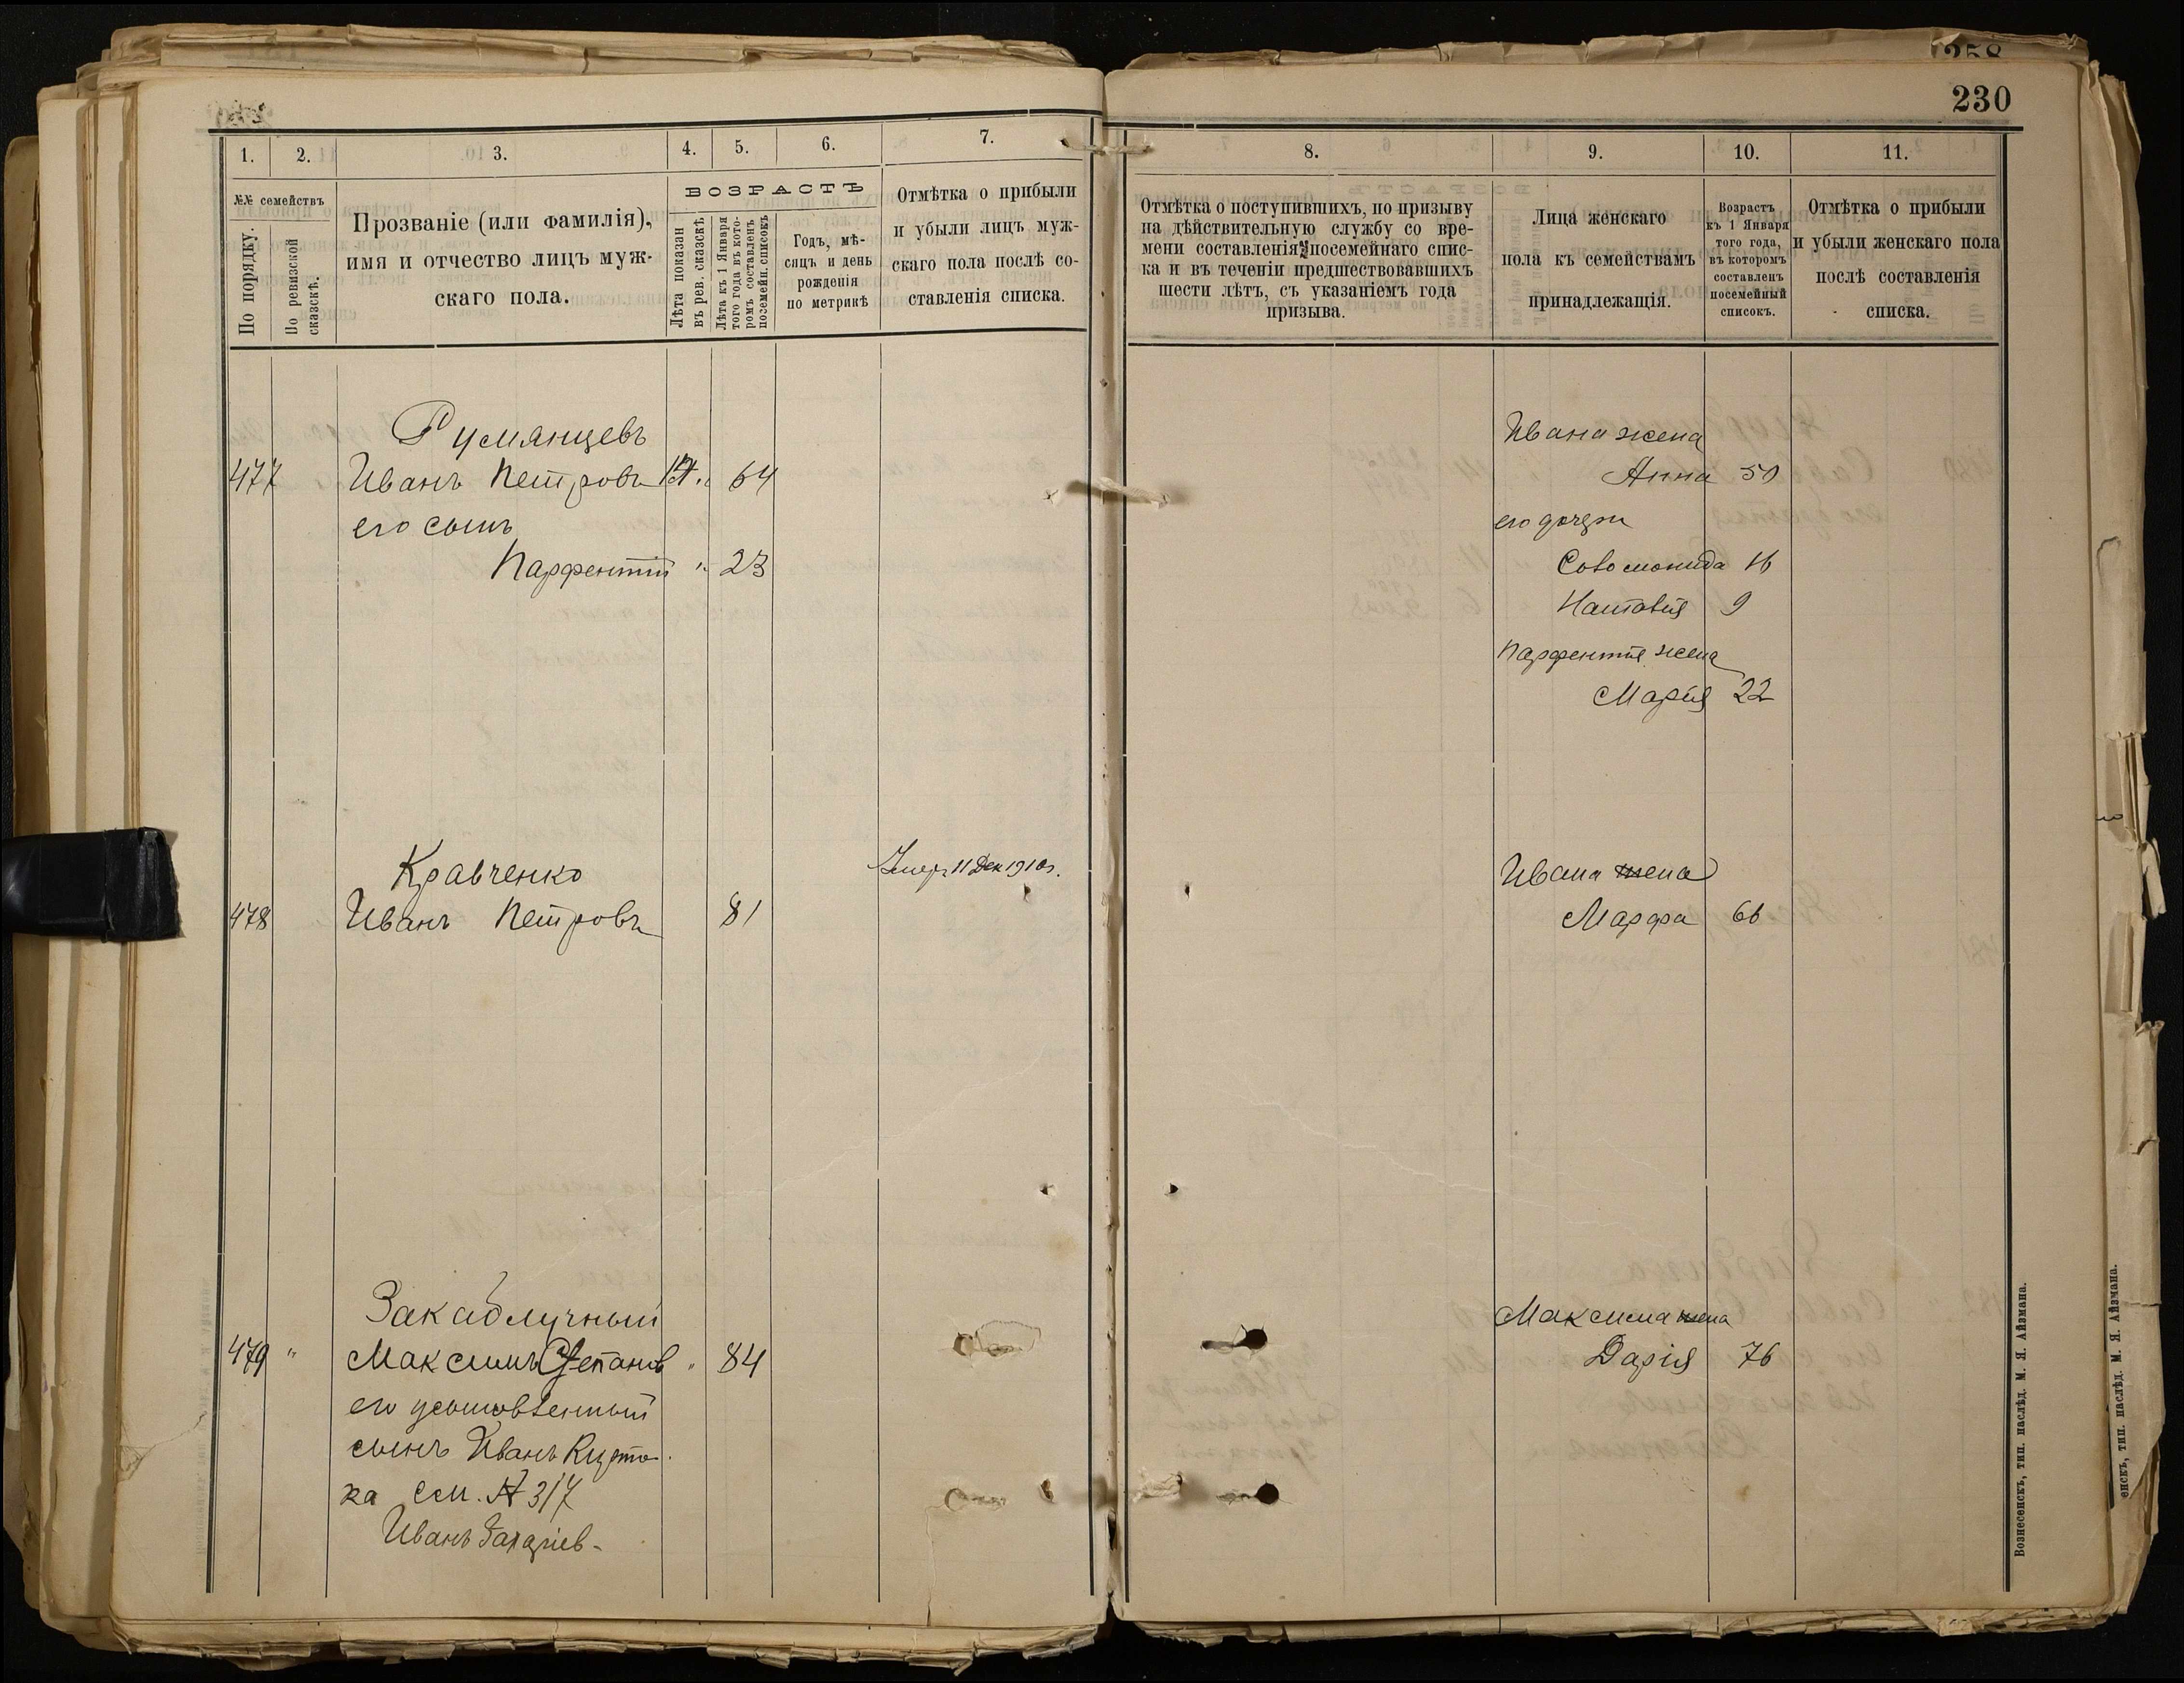 258
230
1. 2. 3. 4. 5. 6. 7.
№№ семействъ
По порядку.
По ревизской сказскѣ.
Прозваніе (или фамилія),
имя и отчество лицъ муж-
скаго пола.
ВОЗРАСТЪ
Лѣта показан
въ рев. сказскѣ
Лѣта къ 1 Января
того года въ кото-
ромъ составленъ
посемейн. списокъ
Годъ, мѣ-
сяцъ и день
рожденія
по метрикѣ
Отмѣтка о прибыли
и убыли лицъ муж-
скаго пола послѣ со-
ставленія списка.
8. 9. 10. 11.
Отмѣтка о поступившихъ, по призыву
на дѣйствительную службу со вре-
мени составленія посемейнаго спис-
ка и въ теченіи предшествовавшихъ
шести лѣтъ, съ указаніемъ года
призыва.
Лица женскаго
пола къ семействамъ
принадлежащія.
Возрастъ
къ 1 Января
того года,
въ которомъ
составленъ
посемейный
списокъ.
Отмѣтка о прибыли
и убыли женскаго пола
послѣ составленія
списка.
Румянцевъ
477 Иванъ Петровъ 64
его сынъ
Парфентій " 23
Ивана жена
Анна 50
его дочери
16
9
Парфентія жена
Марія 22
Кравченко
478 Иванъ Петровъ 81
Умеръ 11 Дек 1910г.
Ивана жена
Марфа 66
Закаблучный
479 " Максимъ Степановъ " 84
его усыновленный
сынъ Иванъ
ка см. № 317
Иванъ
Максима жена
Дарія 76
Вознесенскъ, тип. наслѣд. М. Я. Айзмана.
енскъ, тип. наслѣд. М. Я. Айзмана.